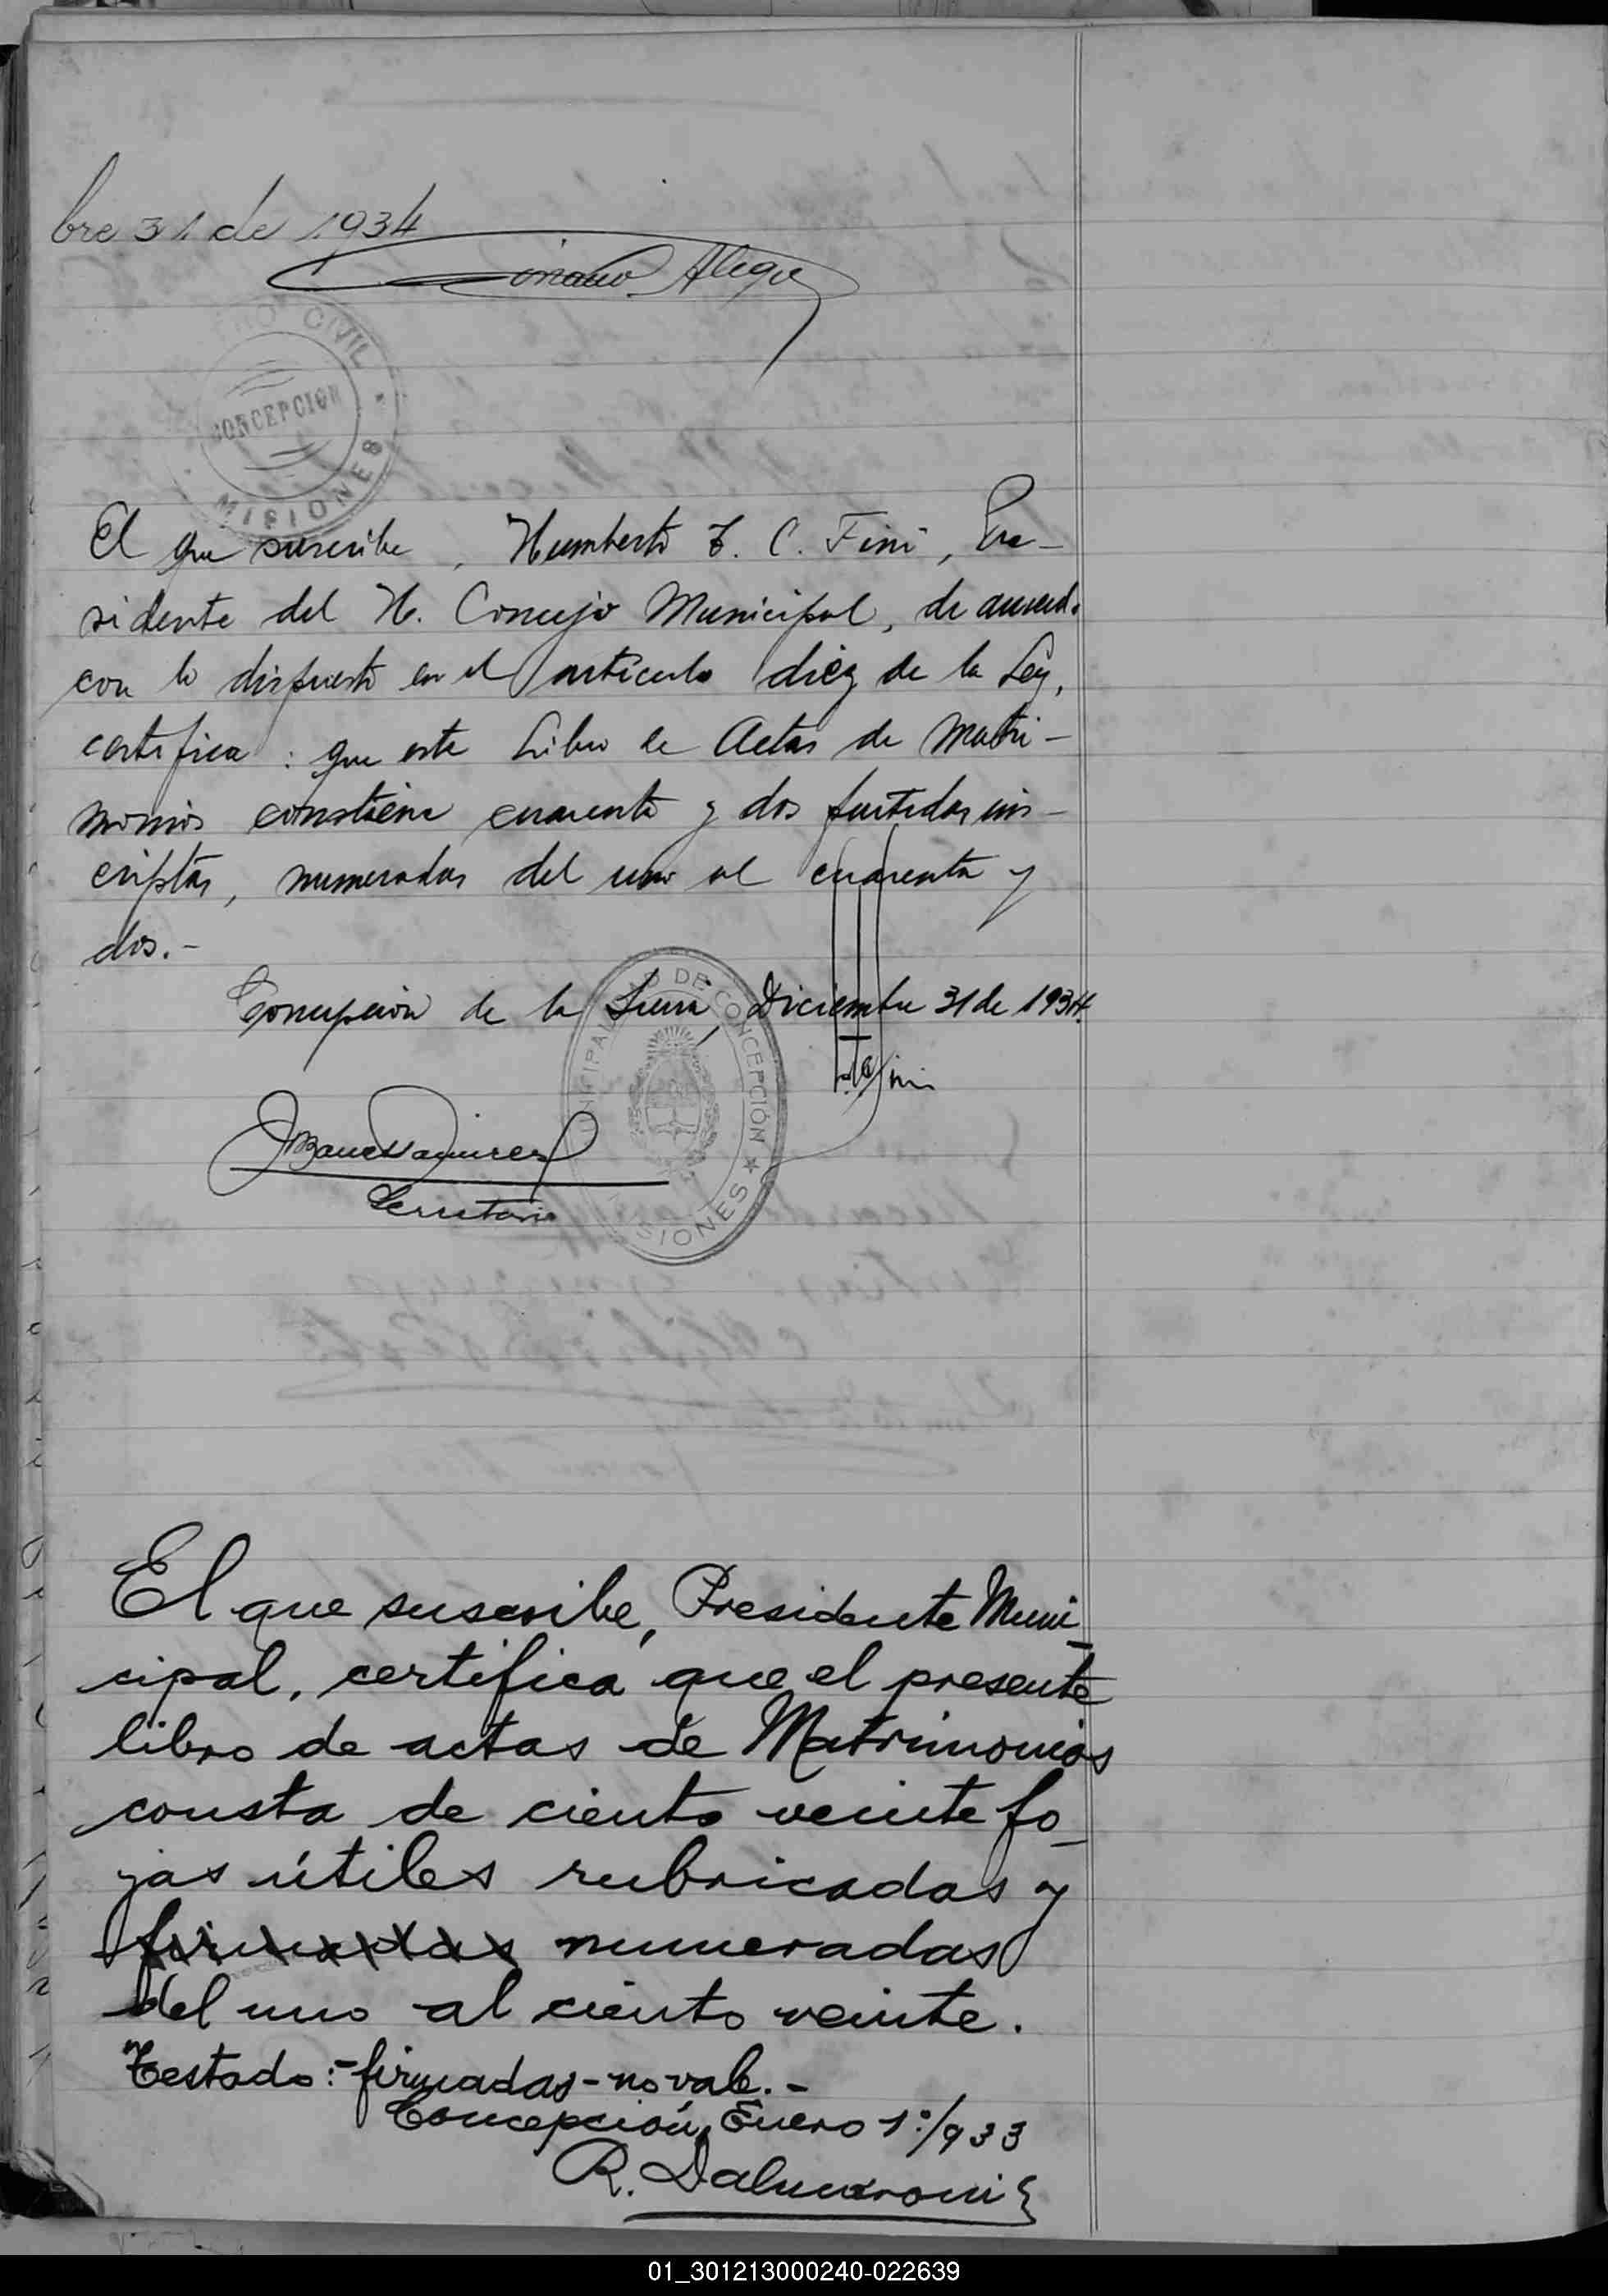 bre 31 de 1934
Alegre
CIVIL
CONCEPCION
MISIONES
El que suscribe, Humberto T. C. Fini, Pre-
sidente del H. Concejo Municipal, de acuerdo
con lo dispuesto en el artículo diez de la Ley,
certifica: que este Libro de Actas de Matri-
monios contiene cuarenta y dos partidas ins-
criptas, numeradas del uno al cuarenta y
dos.-
Concepción de la Sierra, Diciembre 31 de 1934.
DE CONCEPCIÓN
MISIONES
Fini
Secretario
El que suscribe, Presidente Muni-
cipal, certifica que el presente
libro de actas de Matrimonios
consta de ciento veinte fo-
jas útiles rubricadas y
firmadas numeradas
del uno al ciento veinte.
Testado:-firmadas-no vale.-
Concepción, Enero 1º/933
R. Dalmaroni
01_301213000240-022639